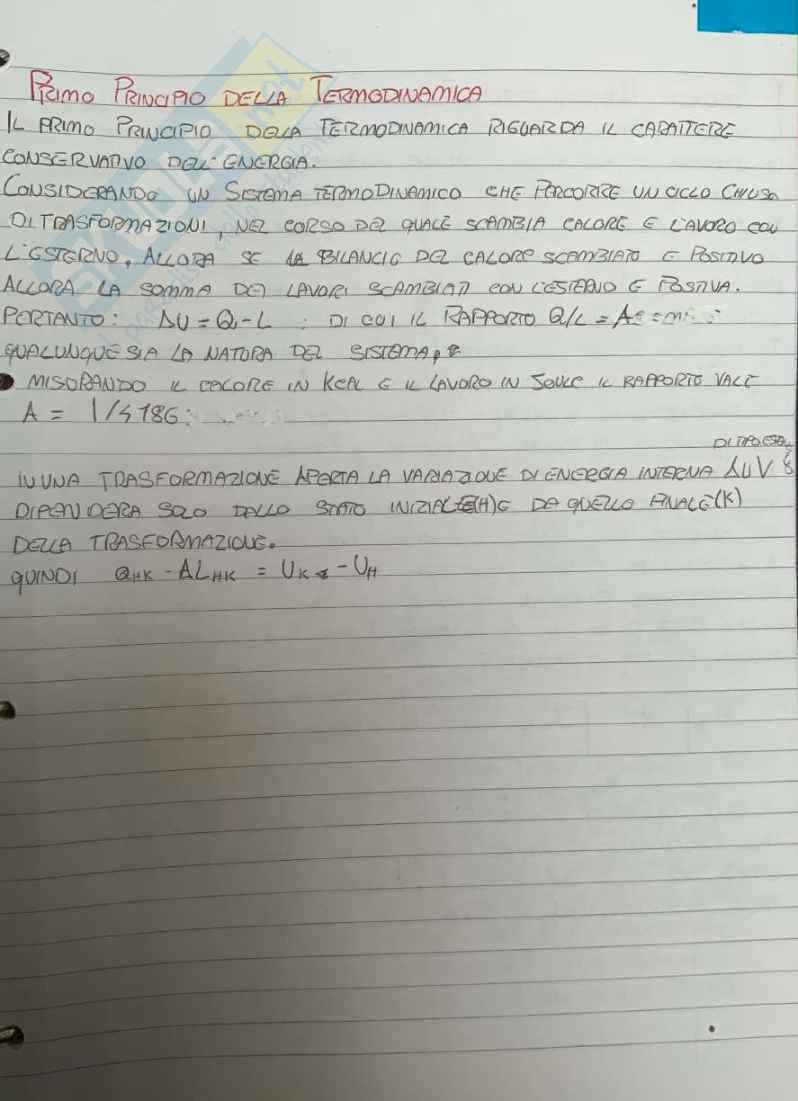 PRIMO PRINCIPIO DELLA TERMODINAMICA
IL PRIMO PRINCIPIO DELLA TERMODINAMICA RIGUARDA IL CARATTERE
CONSERVATIVO DELL'ENERGIA.
CONSIDERANDO UN SISTEMA TERMODINAMICO CHE PERCORRE UN CICLO CHIUSO
DI TRASFORMAZIONI, NEL CORSO DEL QUALE SCAMBIA CALORE E LAVORO CON
L'ESTERNO, ALLORA SE IL BILANCIO DEL CALORE SCAMBIATO E POSITIVO
ALLORA LA SOMMA DEI LAVORI SCAMBIATI CON L'ESTERNO E POSITIVA.
PERTANTO: ΔU = Q - L : DI CUI IL RAPPORTO Q/L = A
QUALUNQUE SIA LA NATURA DEL SISTEMA,
MISURANDO IL CALORE IN KCAL E IL LAVORO IN JOULE IL RAPPORTO VALE
A = 1/4186
DI TIPO
IN UNA TRASFORMAZIONE APERTA LA VARIAZIONE DI ENERGIA INTERNA ΔU
DIPENDERA SOLO DALLO STATO INIZIALE(H)E DA QUELLO FINALE(K)
DELLA TRASFORMAZIONE.
QUINDI Q_HK - AL_HK = U_K - U_H